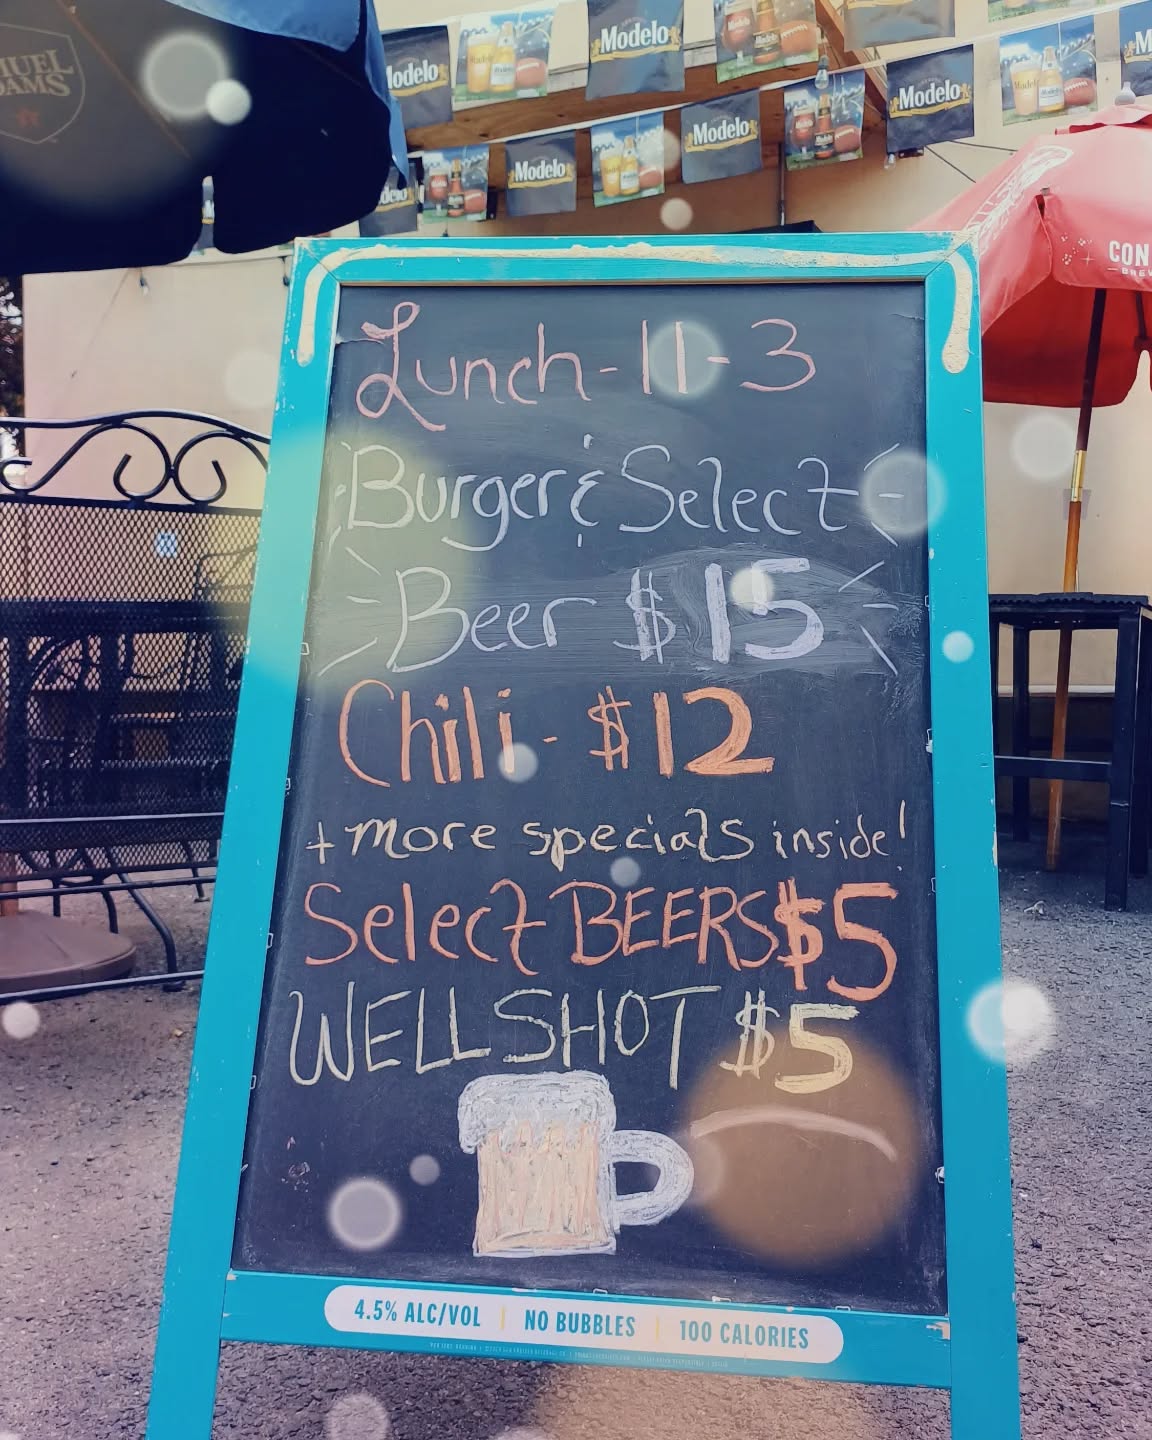 MUEL
DAMS
Modelo
Modelo
Modelo
Modelo
Modelo
CON
BREW
Lunch - 11 - 3
Burger & Select
Beer $15
Chili - $12
+ more specials inside!
Select BEERS $5
WELL SHOT $5
4.5% ALC/VOL | NO BUBBLES | 100 CALORIES